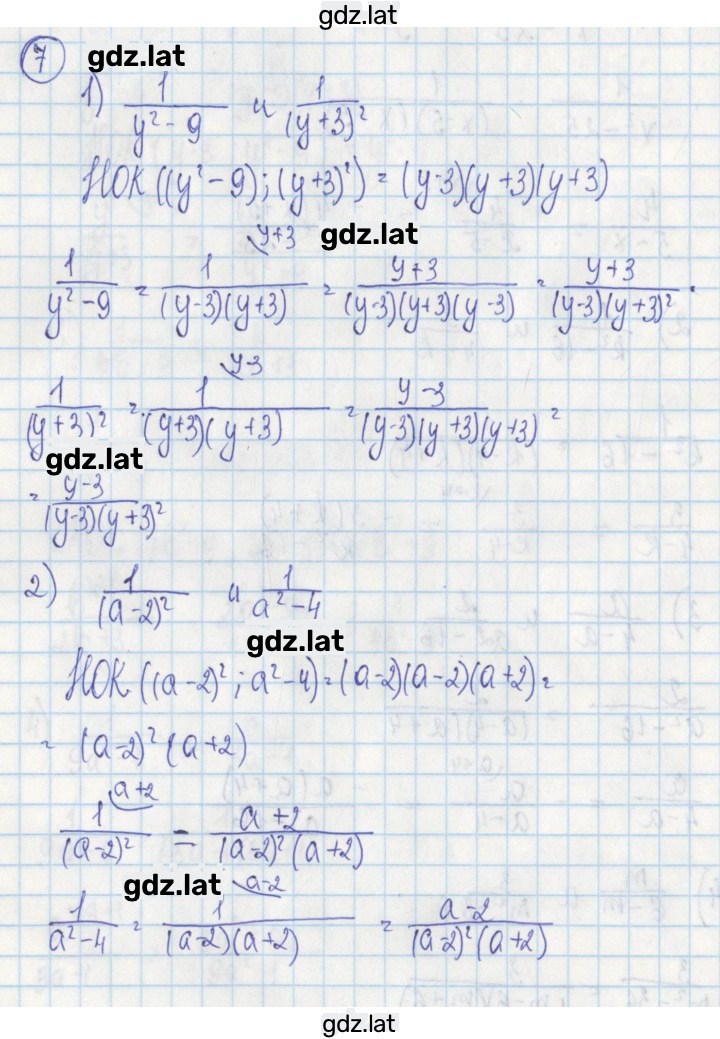 gdz.lat
7 gdz.lat
1) 1/(y² - 9) и 1/(y+3)²
НОК ((y² - 9); (y+3)²) = (y-3)(y+3)(y+3)
gdz.lat
1/(y² - 9) = 1/((y-3)(y+3)) \y+3 = (y+3)/((y-3)(y+3)(y-3)) = (y+3)/((y-3)(y+3)²) .
1/(y+3)² = 1/((y+3)(y+3)) \y-3 = (y-3)/((y-3)(y+3)(y+3)) =
gdz.lat
= (y-3)/((y-3)(y+3)²)
2) 1/(a-2)² и 1/(a² - 4)
gdz.lat
НОК ((a-2)²; a² - 4) = (a-2)(a-2)(a+2) =
= (a-2)² (a+2)
1/(a-2)² \a+2 = (a+2)/((a-2)² (a+2))
gdz.lat
1/(a² - 4) = 1/((a-2)(a+2)) \a-2 = (a-2)/((a-2)² (a+2))
gdz.lat